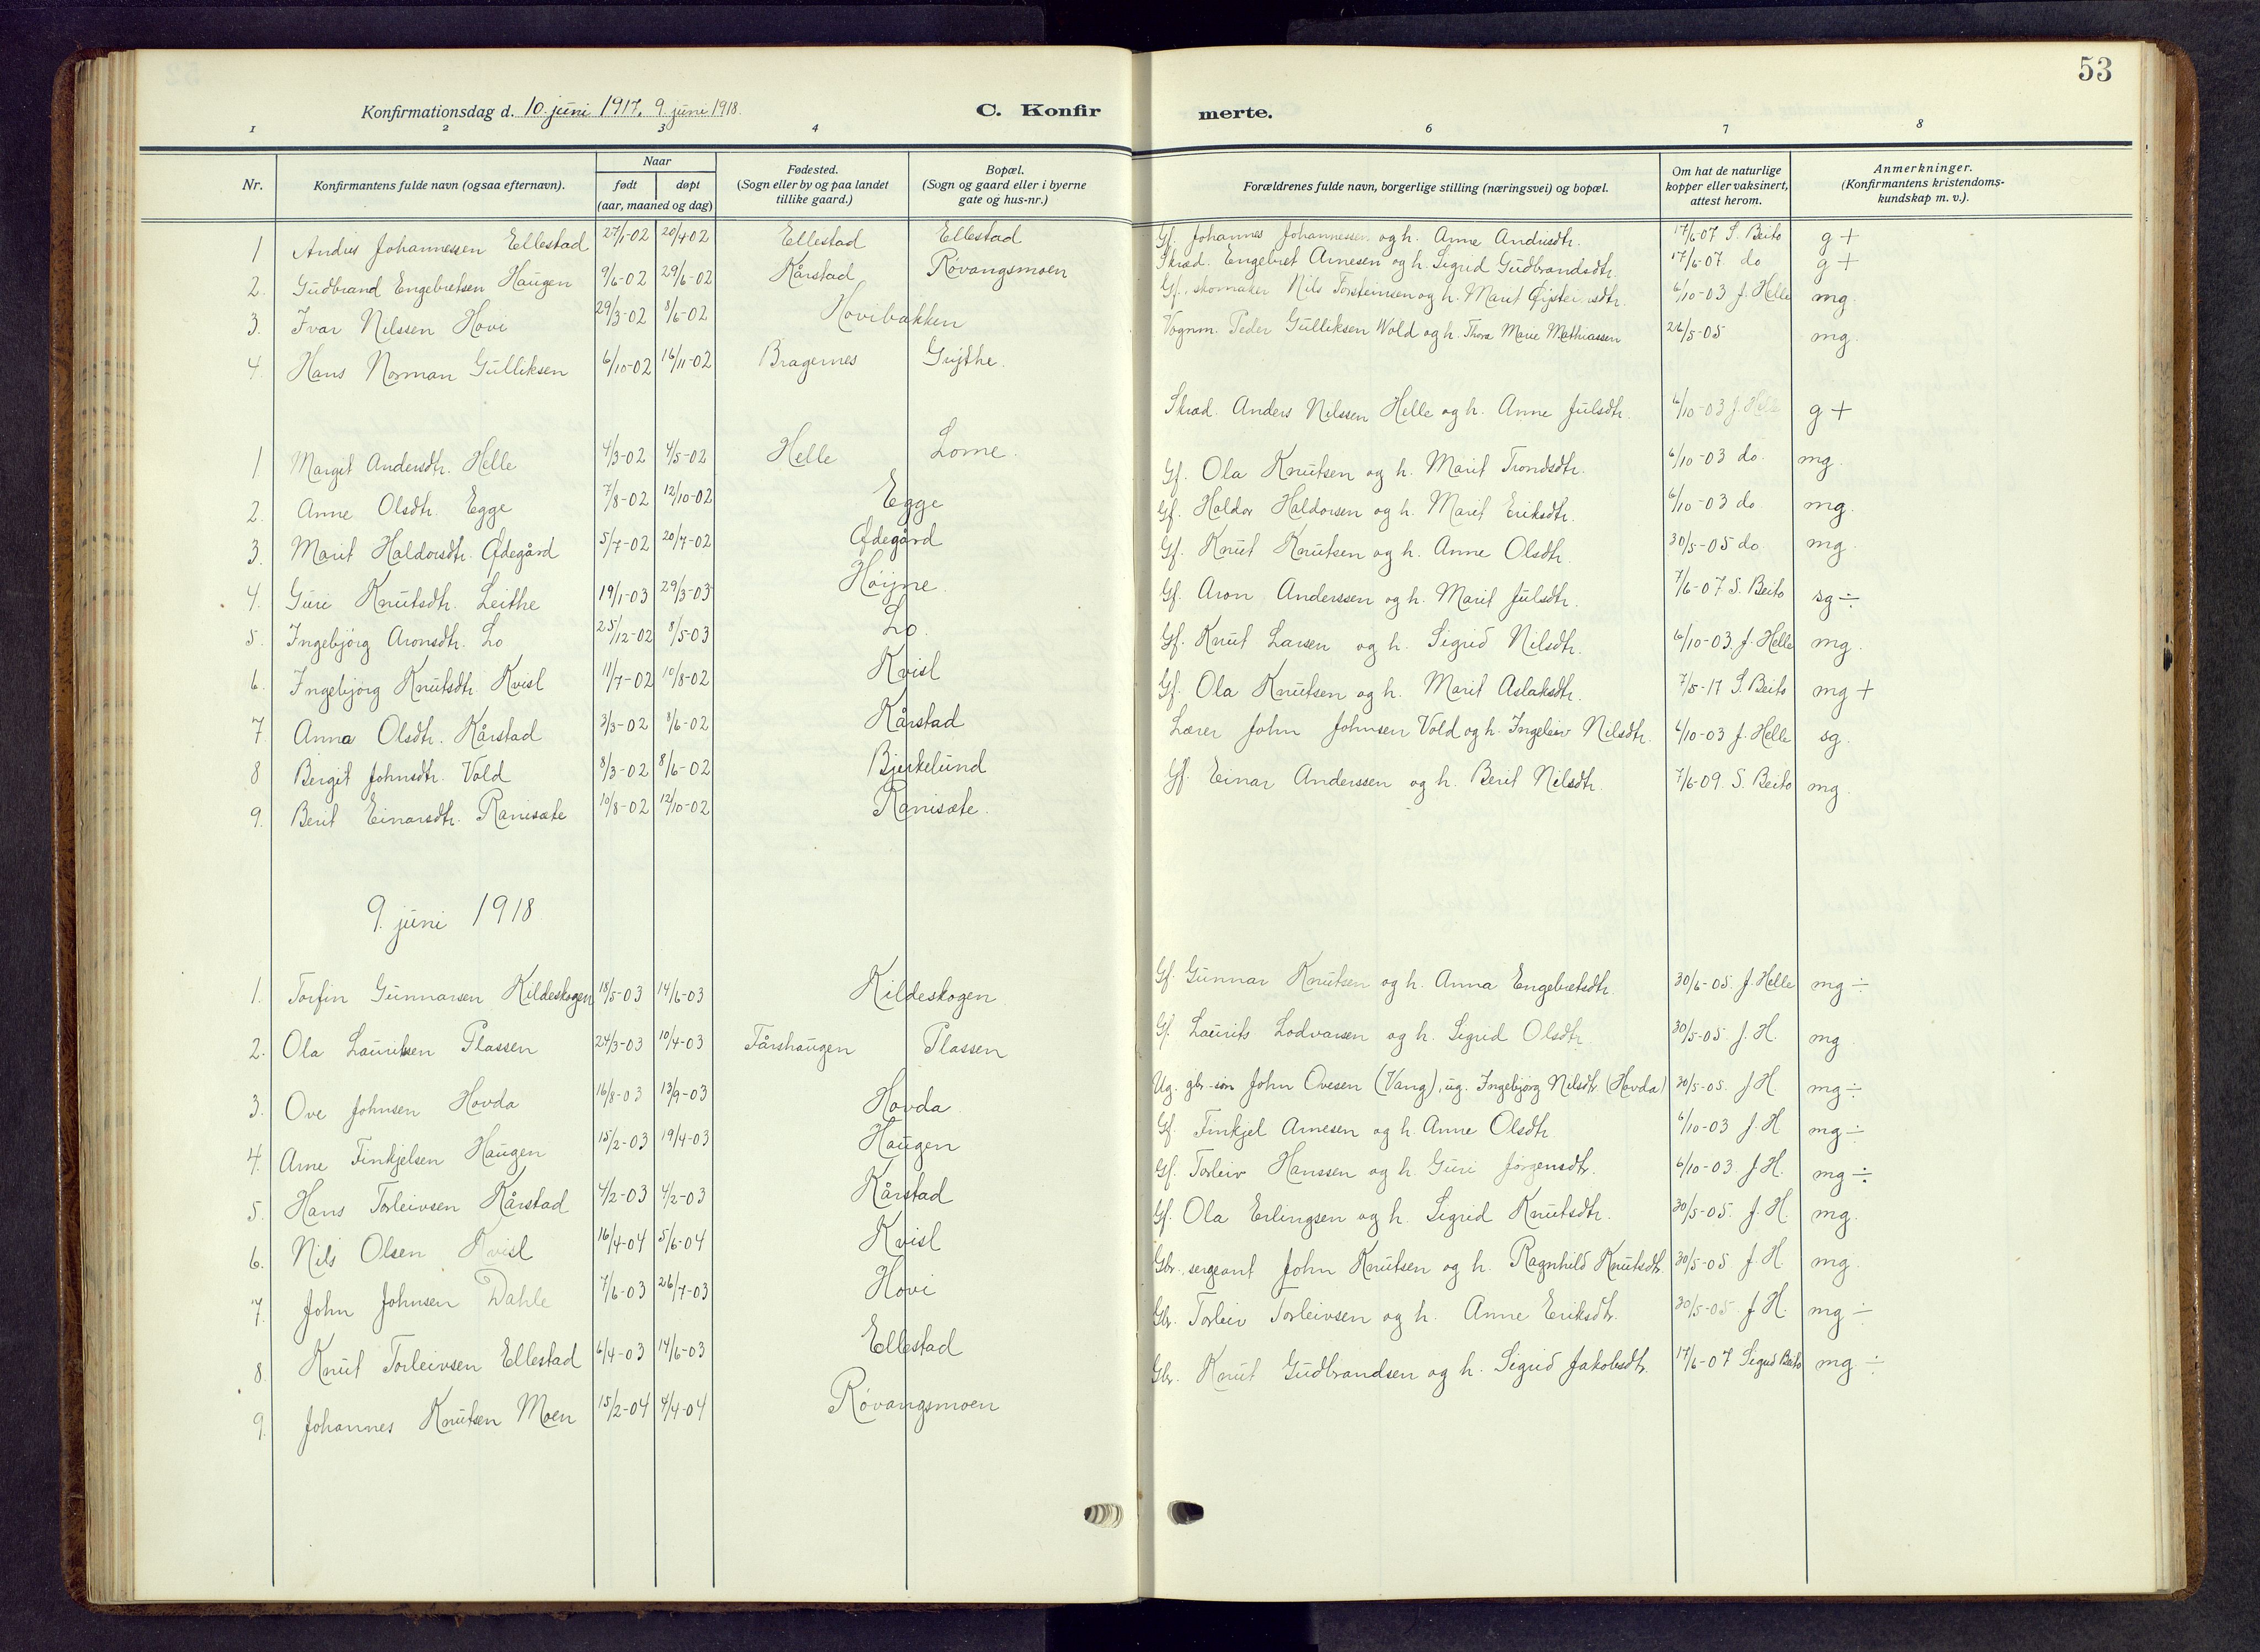 53
Konfirmationsdag d. 10 juni 1917. 9. juni 1918.
C. Konfirmerte.
1 2 3 4 6 7 8
Nr.
Konfirmantens fulde navn (ogsaa efternavn).
Naar
født døpt
(aar, maaned og dag)
Fødested.
(Sogn eller by og paa landet
tillike gaard.)
Bopæl.
(Sogn og gaard eller i byerne
gate og hus-nr.)
Forældrenes fulde navn, borgerlige stilling (næringsvei) og bopæl.
Om hat de naturlige
kopper eller vaksinert,
attest herom.
Anmerkninger.
(Konfirmantens kristendoms-
kundskap m. v.).
1 Andris Johannessen Ellestad 27/1-02 20/4-02 Ellestad Ellestad Gf. Johannes Johannessen og h. Anne Andrisdtr. 17/6-07 S. Beito g +
2. Gudbrand Engebretsen Haugen 9/6-02 29/6-02 Kårstad Røvangsmoen Skræd. Engebret Arnesen og h. Sigrid Gudbrandsdtr. 17/6-07 do g +
3. Ivar Nilssen Hovi 29/3-02 8/6-02 Hovibakken Gf., skomaker Nils Torsteinsen og h. Marit Øisteinsdtr. 6/10-03 J. Helle mg.
4. Hans Norman Gulliksen 6/10-02 16/11-02 Bragernes Grythe. Vognm. Peder Gulliksen Wold og h. Thora Marie Mathiassen 26/5-05 mg.
1 Margit Andersdtr. Helle 4/3-02 4/5-02 Helle Lome. Skræd. Anders Nilssen Helle og h. Anne Julsdtr. 6/10-03 J. Helle g +
2. Anne Olsdtr. Egge 7/8-02 12/10-02 Egge Gf. Ola Knutsen og h. Marit Trondsdtr. 6/10-03 do. mg.
3. Marit Haldorsdtr. Ødegård 5/7-02 20/7-02 Ødegård Gf. Haldor Haldorsen og h. Marit Eriksdtr. 6/10-03 do mg.
4. Guri Knutsdtr. Leithe 19/1-03 29/3-03 Høyne. Gf. Knut Knutsen og h. Anne Olsdtr. 30/5-05 do mg.
5. Ingebjörg Aronsdtr. Lo 25/12-02 8/5-03 Lo. Gf. Aron Anderssen og h. Marit Julsdtr. 7/6-07 S. Beito sg ÷
6. Ingebjörg Knutsdtr. Kvisl 11/7-02 10/8-02 Kvisl Gf. Knut Larsen og h. Sigrid Nilsdtr. 6/10-03. J. Helle mg.
7. Anna Olsdtr. Kårstad 3/3-02 8/6-02 Kårstad Gf. Ola Knutsen og h. Marit Aslaksdtr. 7/5-17 S. Beito mg +
8 Bergit Johnsdtr. Vold 8/3-02 8/6-02 Bjerkelund Lærer John Johnsen Vold og h. Ingeleiv Nilsdtr. 6/10-03 J. Helle sg.
9. Berit Einarsdtr. Ranisæte 10/8-02 12/10-02 Ranisæte. Gf. Einar Anderssen og h. Berit Nilsdtr. 7/6-09. S. Beito mg.
9. juni 1918
1. Torfin Gunnarsen Kildeskogen 18/5-03 14/6-03 Kildeskogen Gf. Gunnar Knutsen og h. Anna Engebretsdtr. 30/6-05. J. Helle mg ÷
2. Ola Lauritsen Plassen 24/3-03 10/4-03 Fårshaugen Plassen Gf. Laurits Lodvarsen og h. Sigrid Olsdtr. 30/5-05 J. H. mg
3. Ove Johnsen Hovda 16/8-03 13/9-03 Hovda Ug. gbr.-søn John Ovesen (Vang), ug. Ingebjörg Nilsdtr. (Hovda) 30/5-05. J H. mg ÷
4. Arne Finkjelsen Haugen 15/2-03 19/4-03 Haugen Gf. Finkjel Arnesen og h. Anne Olsdtr. 6/10-03 J. H mg ÷
5. Hans Torleivsen Kårstad 4/2-03 4/2-03 Kårstad Gf. Torleiv Hanssen og h. Guri Jörgensdtr. 6/10-03. J. H. mg ÷
6. Nils Olsen Kvisl 16/4-04 5/6-04 Kvisl Gf. Ola Erlingsen og h. Sigrid Knutsdtr. 30/5-05. J. H. mg.
7. John Johnsen Dahle 7/6-03 26/7-03 Hovi Gbr. sergeant John Knutsen og h. Ragnhild Knutsdtr. 30/5-05 J. H. mg.
8. Knut Torleivsen Ellestad 6/4-03 14/6-03 Ellestad Gbr. Torleiv Torleivsen og h. Anne Eriksdtr. 30/5-05 J. H. mg ÷
9. Johannes Knutsen Moen 15/2-04 4/4-04 Røvangsmoen Gbr. Knut Gudbrandsen og h. Sigrid Jakobsdtr. 17/6-07 Sigurd Beito mg ÷